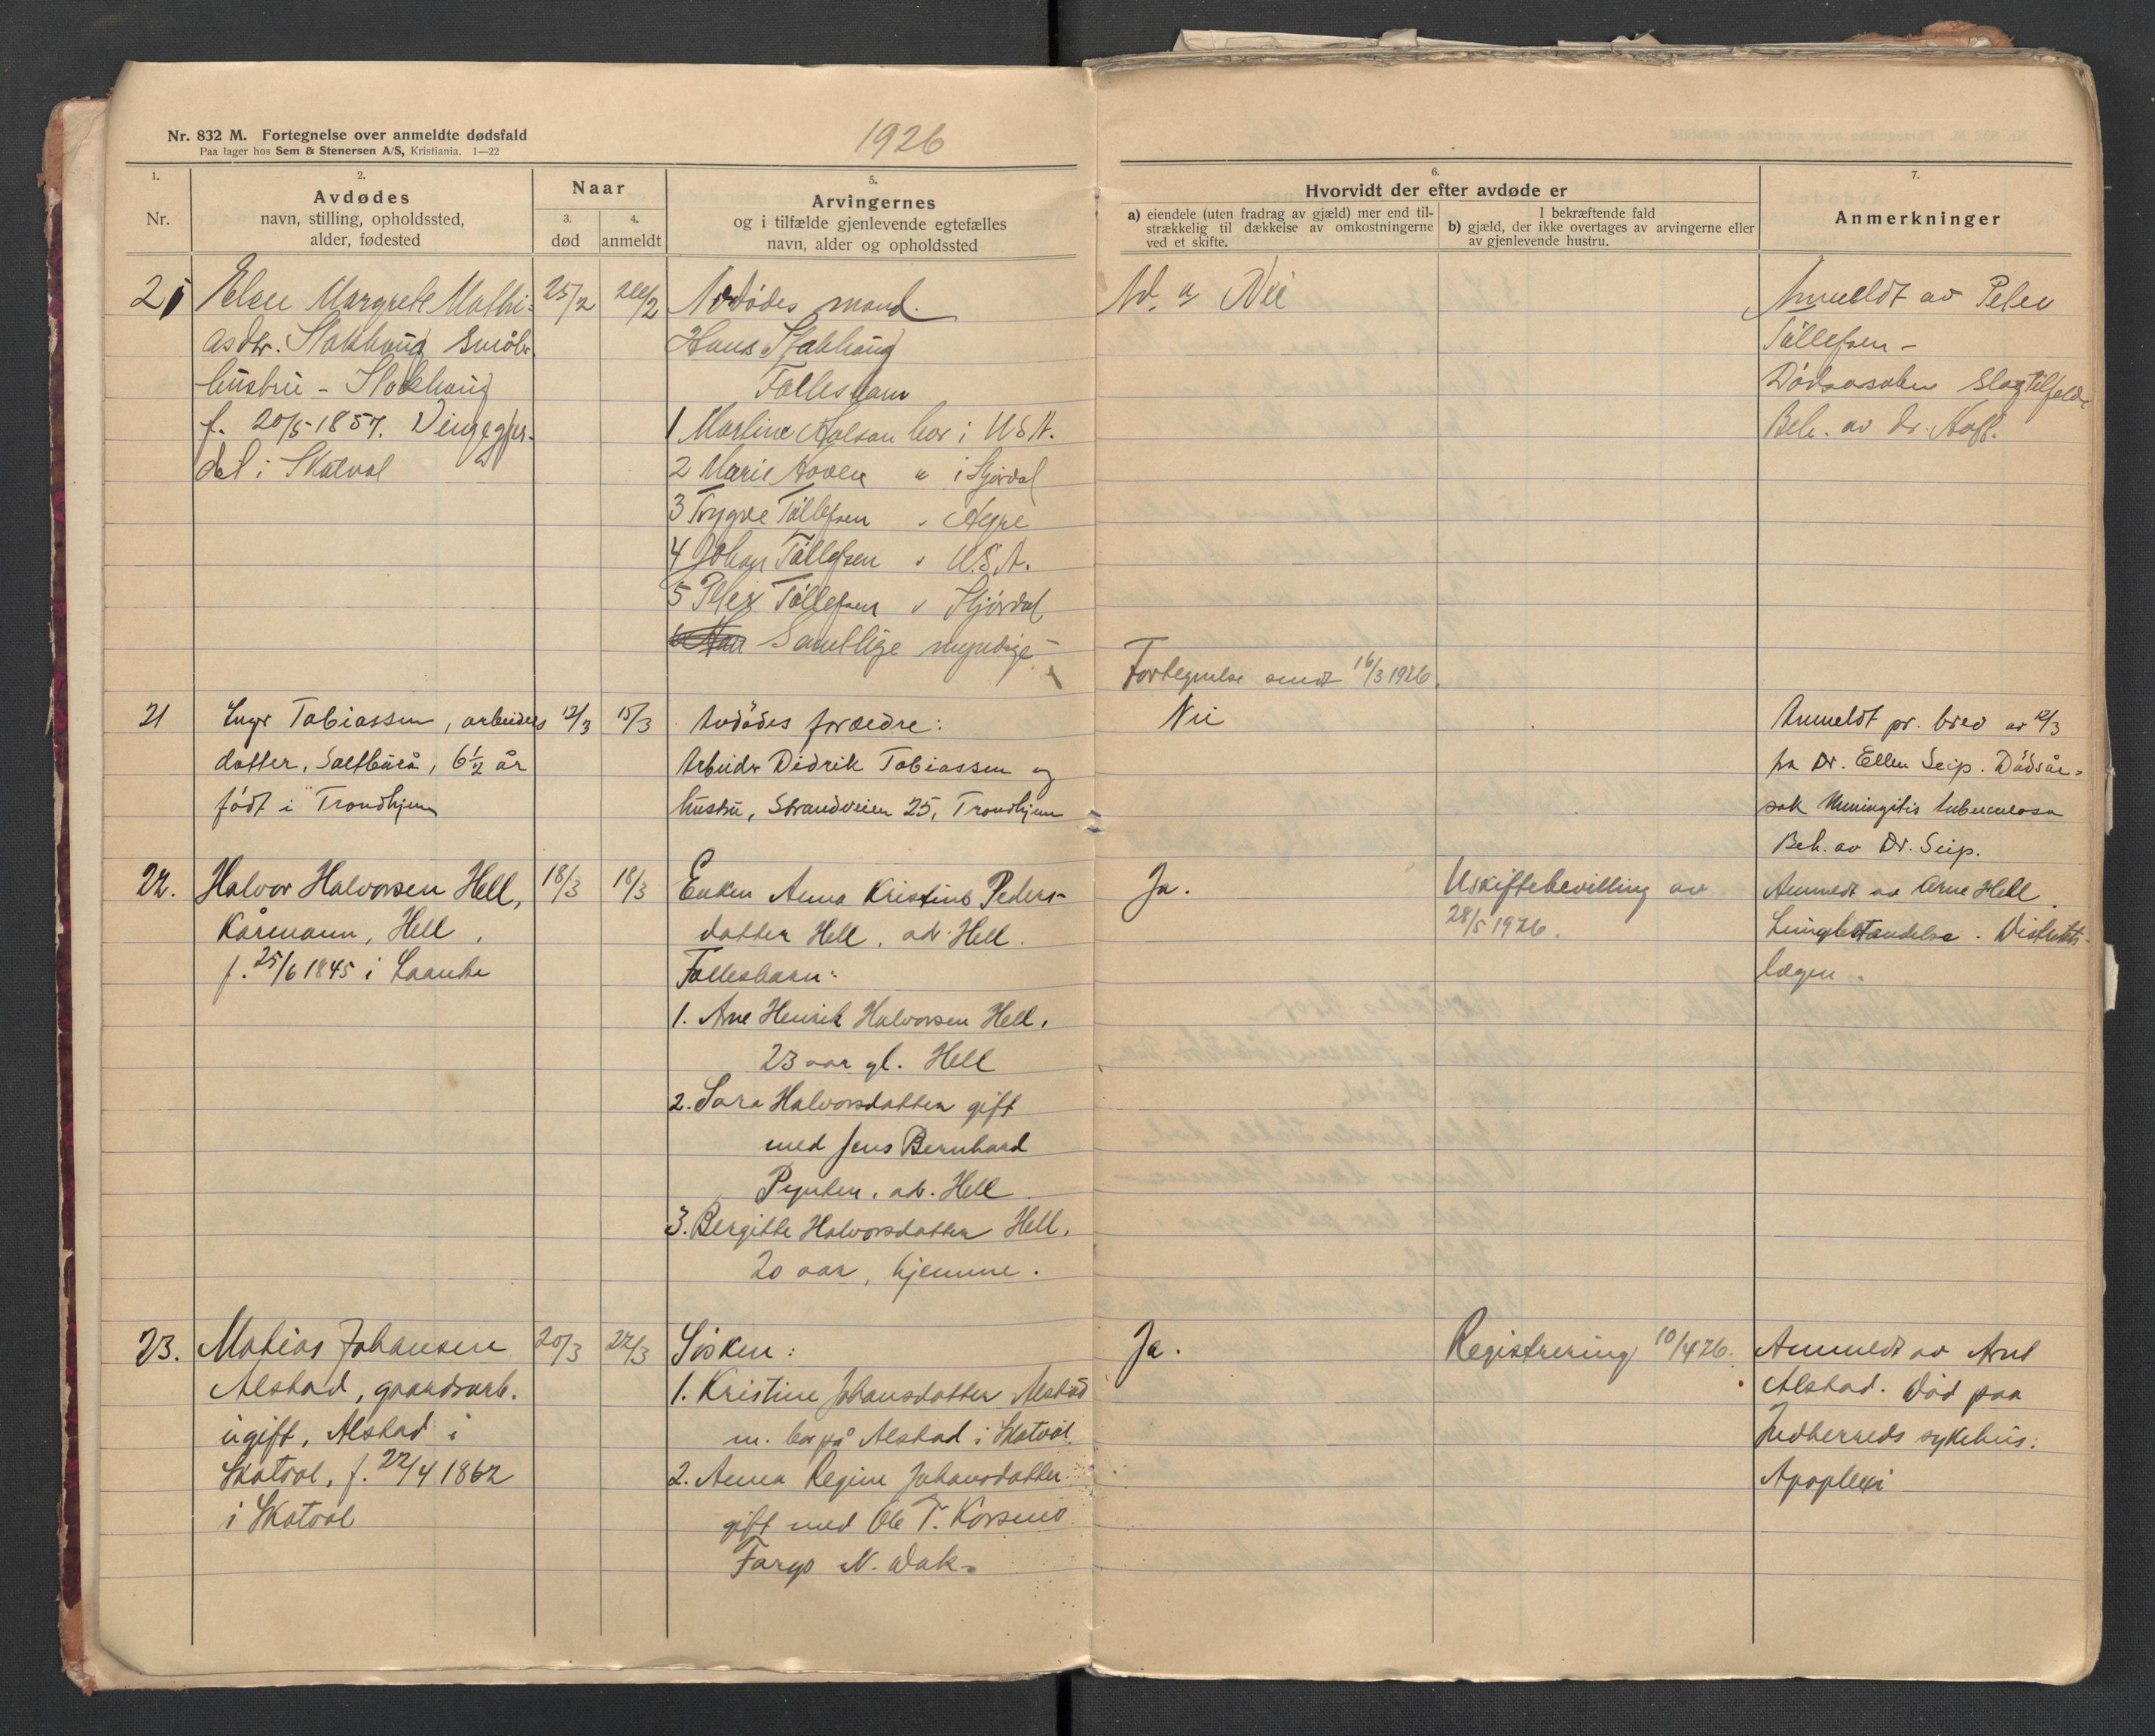 Nr. 832 M. Fortegnelse over anmeldte dødsfald
Paa lager hos Sem & Stenersen A/S, Kristiania. 1—22
1926
1.
Nr.
2.
Avdødes
navn, stilling, opholdssted,
alder, fødested
Naar
3.
død
4.
anmeldt
5.
Arvingernes
og i tilfælde gjenlevende egtefælles
navn, alder og opholdssted
6.
Hvorvidt der efter avdøde er
a) eiendele (uten fradrag av gjæld) mer end til-
strækkelig til dækkelse av omkostningerne
ved et skifte.
I bekræftende fald
b) gjæld, der ikke overtages av arvingerne eller
av gjenlevende hustru.
7.
Anmerkninger
Margrete Mathi-
asdtr. Stokhaug småbr.
hustru - Stokhaug
f. 20/5-1857.
dal i Skatval
25/2
Avdødes mand.
Hans Stokhaug
Fællesbarn
1 Martine bor i USA.
2 Marie " i Stjørdal
3 Trygve Tøllefsen
4 Johan Tøllefsen " U.S.A.
5 Peter Tøllefsen " Stjørdal
Samtlige myndige
Nei
Fortegnelse sendt 16/3 1926.
Anmeldt av Peter
Tøllefsen -
Dødsorsaken slagtilfelde
Beh. av dr.
21
Tobiassen, arbeiders
datter, 6 1/2 år
født i Trondhjem
12/3
15/3
Avdødes foreldre:
Arbeider Didrik Tobiassen og
hustru, Strandveien 25, Trondhjem
Nei
Anmeldt pr. brev av 12/3
fra Dr. Ellen Seip. Dødsår-
sak Meningitis tuberculosa
Beh. av Dr. Seip.
22.
Halvor Halvorsen Hell,
Kårmann, Hell,
f. 25/6 1845 i Laanke
18/3
18/3
Enken Anna Kristine Peders-
datter Hell, adr. Hell.
Fællesbarn:
1. Arne Henrik Halvorsen Hell,
23 aar gl. Hell
2. Sara Halvorsdatter gift
med Jens Bernhard
adr. Hell
3. Bergitte Halvorsdatter Hell,
20 aar, hjemme.
Ja.
Uskiftebevilling av
28/5 1926.
Anmeldt av Arne Hell.
Lungebetændelse. Distrikts-
lægen.
23.
Matias Johansen
Alstad, gaardsarb.
ugift, Alstad i
Skatval, f. 22/4 1862
i Skatval
20/3
22/3
Søsken:
1. Kristine Johansdatter Alstad
m. bor på Alstad i Skatval.
2. Anna Regine Johansdatter
gift med Ole T. Korsmo
Fargo N. Dak.
Ja.
Registrering 10/4 26.
Anmeldt av Arnt
Alstad. Død paa
Indherreds sykehus.
Apoplexi